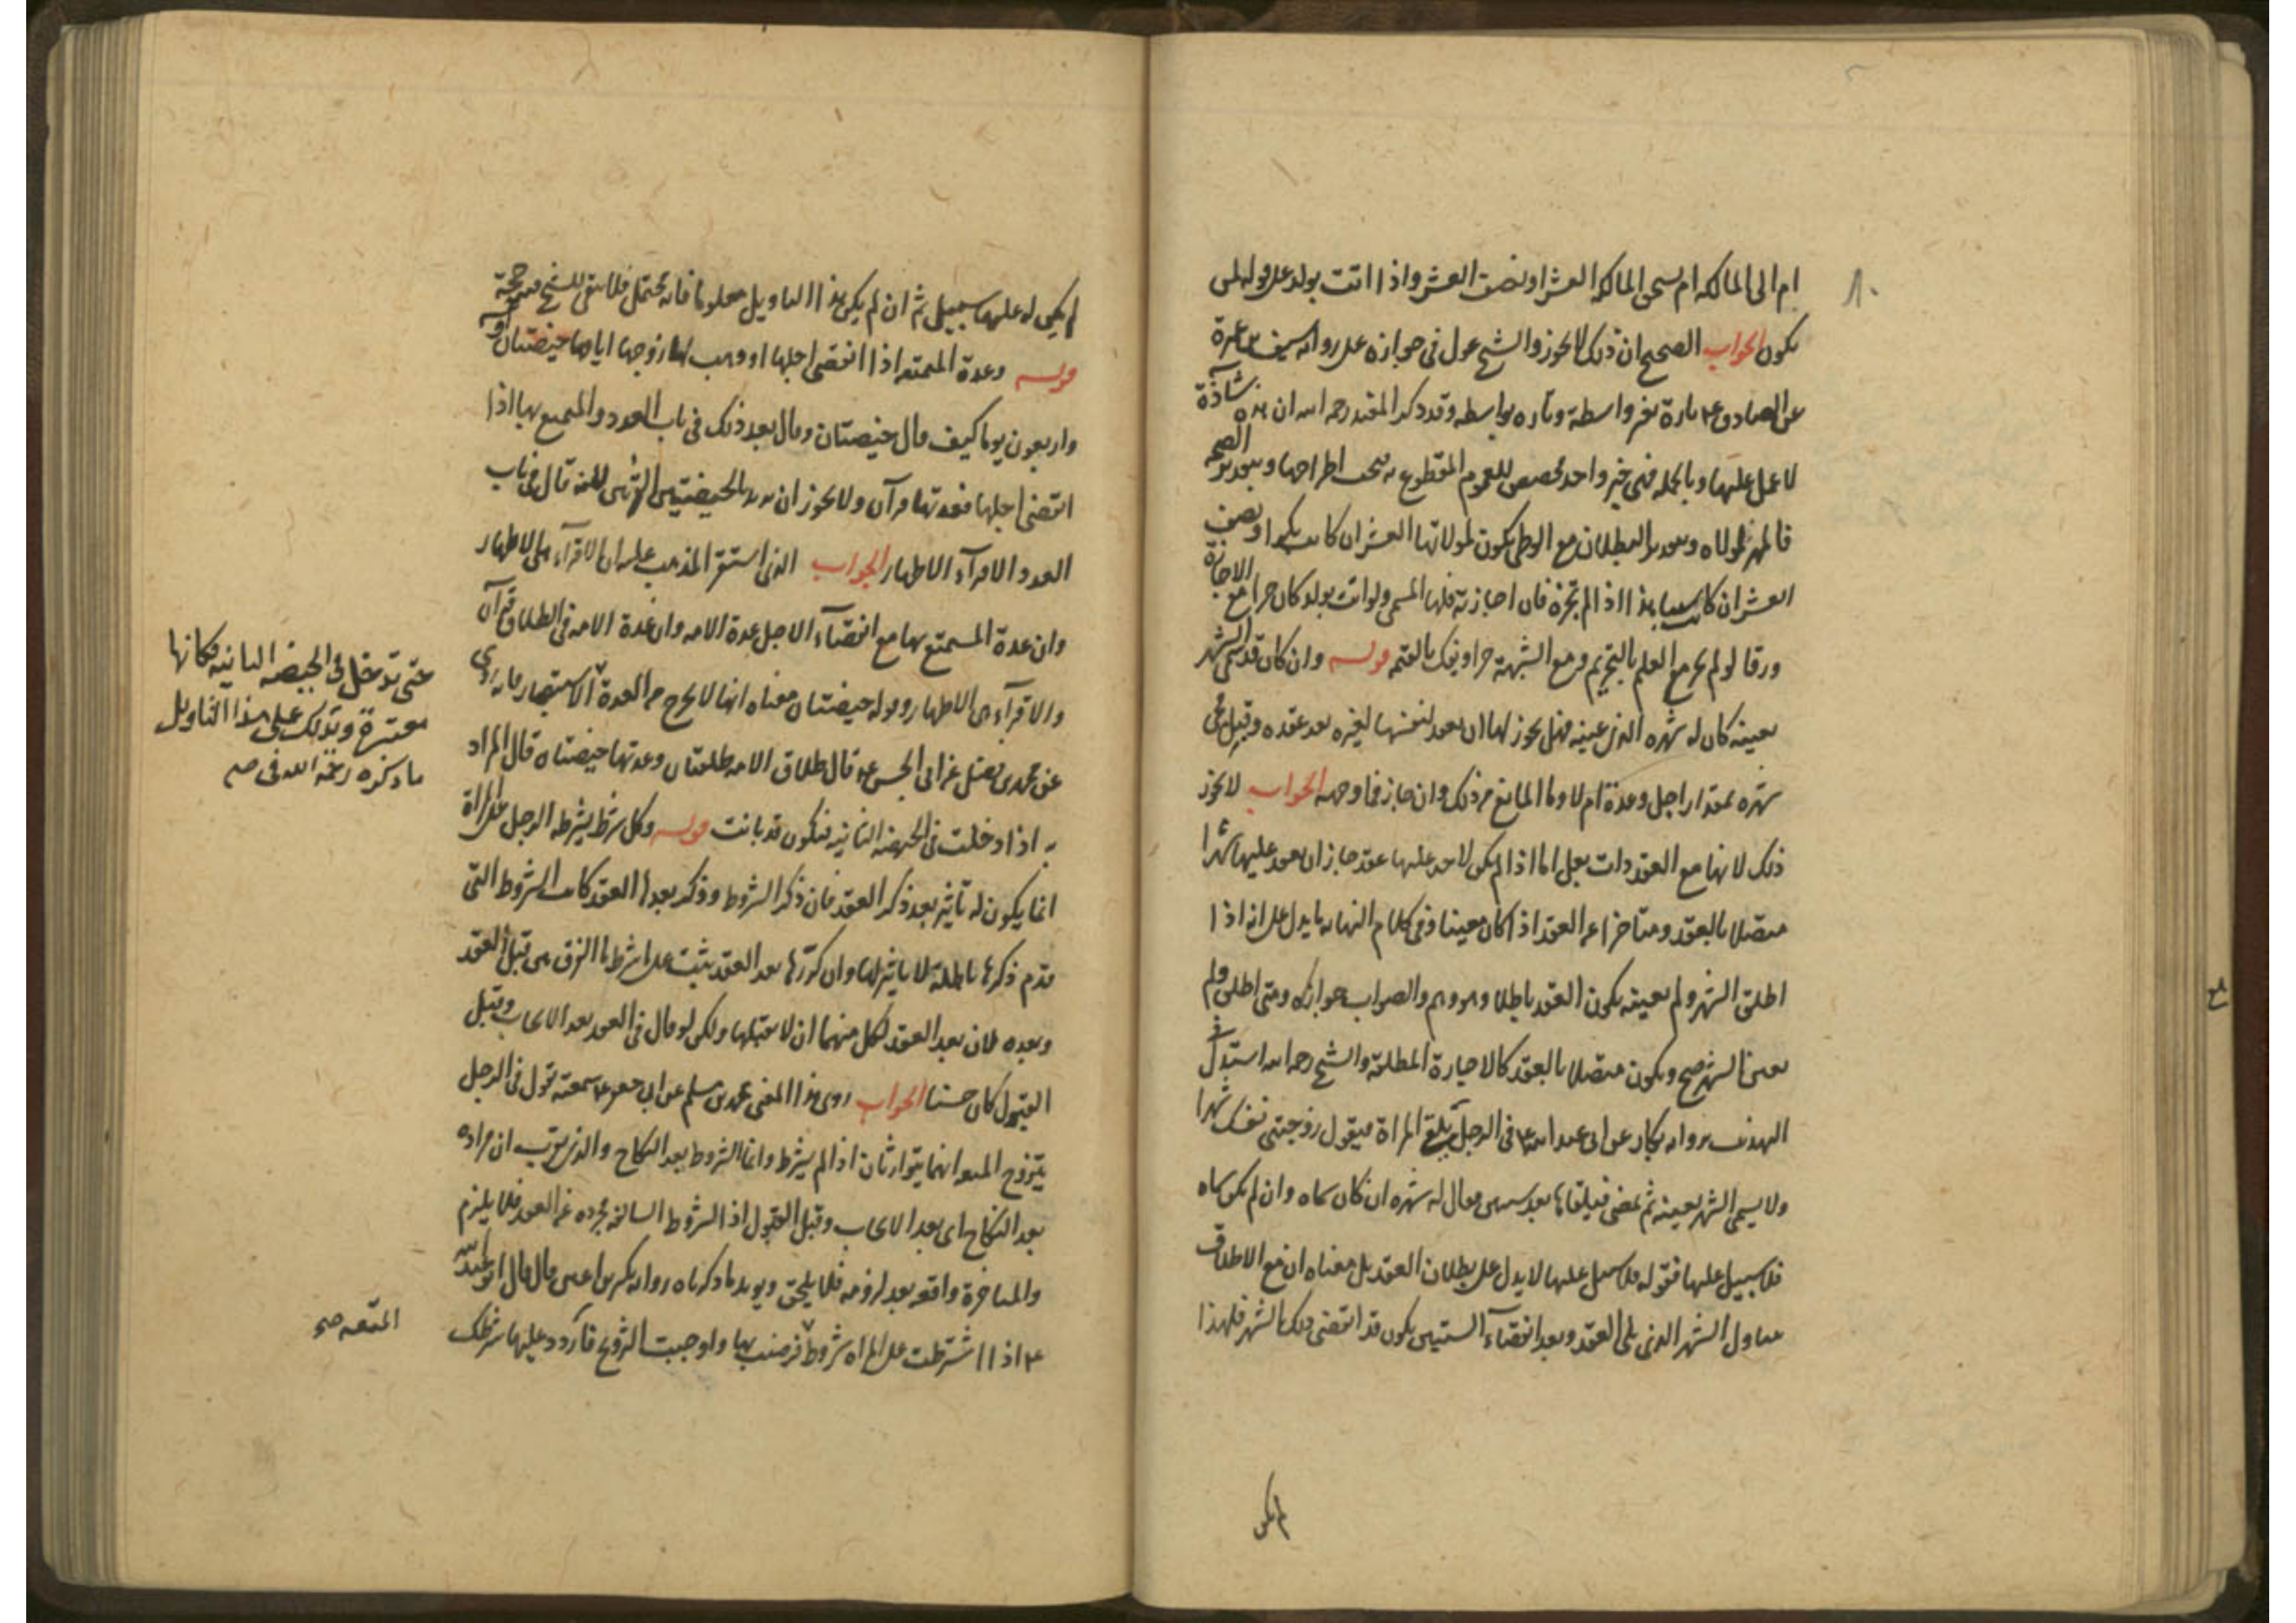 ٨٠
ام الى المالكه ام يسمى المالكه العشر او نصف العشر واذا اتت بولد على قوله لمن
يكون الجواب الصحيح ان ذلك لا يجوز والشيخ عول في جوازه على روايه سيف بن عميرة
عن الصادق ع تارة بغير واسطة وتاره بواسطه وقد ذكر المفيد رحمه الله ان هذه شاذة
لا عمل عليها وبالجمله فهي خبر واحد مخصص للعموم المقطوع به فيجب اطراحها وبتقدير الصحه
فالمهر لمولاه وبتقدير البطلان مع الوطى يكون لمولاتها العشر ان كانت بكرا ونصف
العشر ان كانت ثيبا هذا اذا لم تجزه فان اجازته فلها المسمى ولو اتت بولد كان حرا مع الاجازة
ورقا لو لم يجز مع العلم بالتحريم ومع الشبهة حرا ويفك بالقيمه قوله وان كان قد سمى الشهر
بعينه كان له شهره الذي عينه فهل يجوز لها ان تعقد لنفسها لغيره بعد عقده وقبل مجى
شهره بمقدار اجل وعدة ام لا وما المانع من ذلك وان جاز فما وجهه الجواب لا يجوز
ذلك لانها مع العقد ذات بعل اما اذا لم يكن لاحد عليها عقد جاز ان يعقد عليها شهرا
متصلا بالعقد ومتاخرا عن العقد اذا كان معينا وفي كلام النهايه ما يدل على انه اذا
اطلق الشهر ولم يعينه يكون العقد باطلا وهو وهم والصواب جوازه ومتى اطلق ولم
يعين الشهر صح ويكون متصلا بالعقد كالاجارة المطلقة والشيخ رحمه الله استدل في
التهذيب بروايه بكار عن ابي عبد الله ع في الرجل يلقى المراة فيقول زوجتني نفسك شهرا
ولا يسمى الشهر بعينه ثم يمضى فيلقاها بعد سنين فقال له شهره ان كان سماه وان لم يكن سماه
فلا سبيل عليها فقوله فلا سبيل عليها لا يدل على بطلان العقد بل معناه ان مع الاطلاق
يتناول الشهر الذي يلى العقد وبعد انقضآء السنين يكون قد انقضى ذلك الشهر فلهذا
لم يكن
لم يكن له عليها سبيل ثم ان لم يكن هذا التاويل معلوما فانه محتمل فلا يبقى للشيخ فيه حجة
قوله وعدة المتمتعه اذا انقضى اجلها او وهب لها زوجها ايامها حيضتان او خمسة
واربعون يوما كيف قال حيضتان وقال بعد ذلك في باب العدد والمتمتع بها اذا
انقضى اجلها فعدتها قرآن ولا يجوز ان يريد الحيضتين القرئين لانه قال في باب
العدد الاقرآء الاطهار الجواب الذي استقر المذهب عليه ان الاقرآء هي الاطهار
وان عدة المستمتع بها مع انقضآء الاجل عدة الامه وان عدة الامه في الطلاق قرآن
والاقرآء هي الاطهار وقوله حيضتان معناه انها لا تخرج من العدة
حتى تدخل في الحيضه الثانيه فكانها
معتبرة ويدلك على هذا التاويل
ما ذكره رحمه الله في صح
الاستبصار فانه روى
عن محمد بن الفضيل عن ابي الحسن ع قال طلاق الامه طلقتان وعدتها حيضتان قال المراد
به اذا دخلت في الحيضه الثانيه فتكون قد بانت قوله وكل شرط يشرطه الرجل على المراة
انما يكون له تاثير بعد ذكر العقد فان ذكر الشروط وذكر بعدها العقد كانت الشروط التي
قدم ذكرها باطلة لا تاثير لها وان كررها بعد العقد يثبت على ما شرط ما الفرق بين قبل العقد
وبعده لان بعد العقد لكل منهما ان لا يقبلها ولكن لو قال في العقد بعد الايجاب وقبل
القبول كان حسنا الجواب روى هذا المعنى محمد بن مسلم عن ابي جعفر ع سمعته يقول في الرجل
يتزوج المتعه انهما يتوارثان اذا لم يشرط وانما الشروط بعد النكاح والذي يقرب ان مراده
بعد النكاح اى بعد الايجاب وقبل القبول اذ الشروط السالفه مجرده عن العقد فلا يلزم
والمتاخرة واقعه بعد لزومه فلا يلحق ويويد ما ذكرناه روايه بكير بن اعين قال قال ابو عبد الله
ع اذا اشترطت على المراه شروط
المتعه صح
فرضيت بها واوجبت التزويج فاردد عليها شرطك